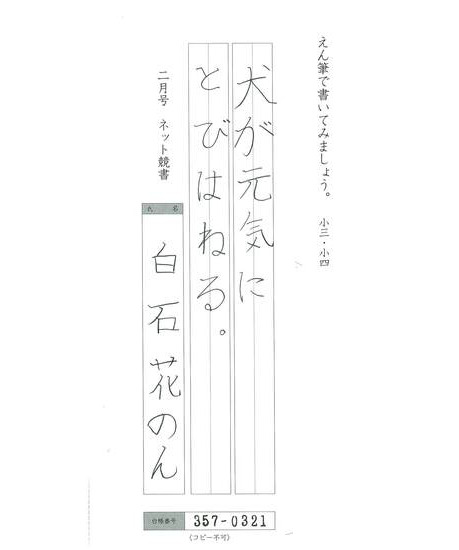 えん筆で書いてみましょう。 小三・小四
犬が元気に
とびはねる。
二月号 ネット競書
氏名
白石花のん
台帳番号 357-0321
(コピー不可)